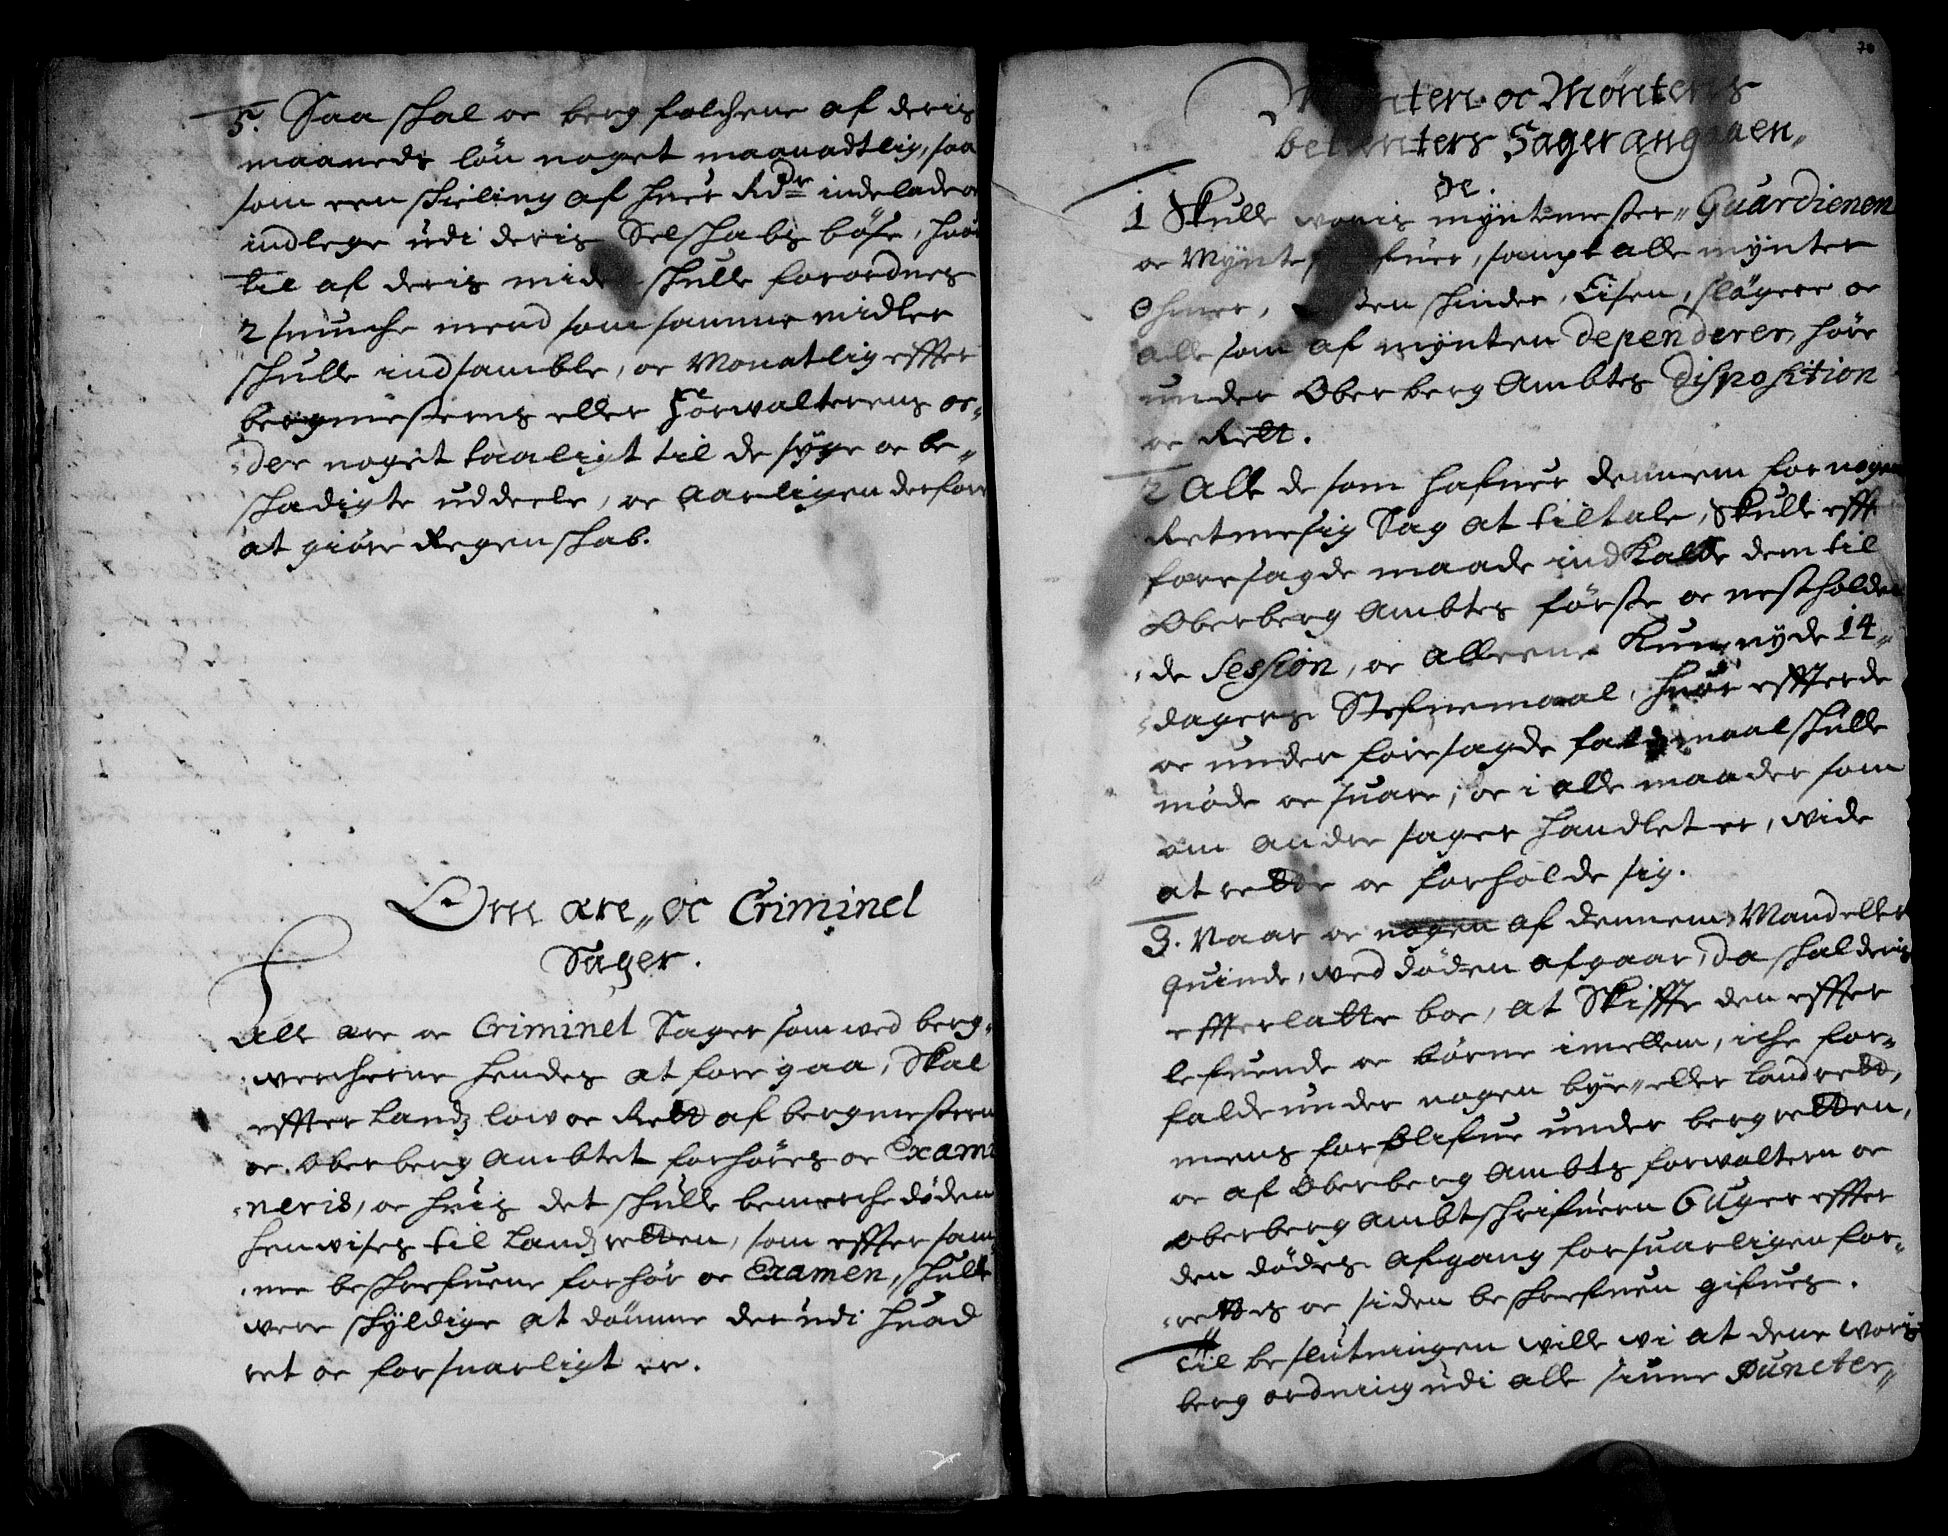 5. Saa skal oc berg folchene af deris
maaneds lön noget maanadtlig, saa
som een skieling af huer Rdr indelade oc
indlege udi deris Selskabs böse, huor
til af deris mid skulle forordnes
2 smuche mend som samme midler
skulle indsamble, oc Monatlig effter
bergmesterens eller Forwalterens or-
der noget taaligt til de syge oc be-
skadigte uddeele, oc aarligen derfore
at giöre Regenskab.
Om ære, oc Criminel
Sager.
Alle ære oc Criminel Sager som wed berg-
wercherne hendes at fore gaa, Skal
effter Landz low oc Rett af bergmestern
oc Oberberg Ambtet forhöres oc Exami
neris, oc huis det skulle bemerche döden
henwises til Landz retten, som effter sam
me beskrefuene forhör oc Examen, skulle
were skyldige at dömme der udi huad
ret oc forsuarligt er.
70
Mönten oc Möntens
betienters Sager angaaen,,
de.
1 Skulle woris myntmester, Guardienen
oc Mynt skrifuer, sampt alle mynter
Ohmer, skinder, Eisen, slögere oc
alle som af mynten dependerer, höre
under Oberberg Ambtes disposition
oc Rett.
2 Alle de som hafuer dennem for nogen
Retmesig Sag at tiltale, Skulle efft
foresagde maade indkalde dem til
Oberberg Ambtes förste oc nestholden
de Session, oc alleene kun nyde 14
dagers Stefnemaal, huor effterde
oc under foresagde faldsmaal skulle
möde oc suare, oc i alle maader som
om andre sager handlet er, wide
at rette oc forholde sig.
3. Naar oc nogen af dennem, Mand eller
quinde, wed döden afgaar, da skal deris
effterlatte boe, at Skiffte den effter
lefuende oc börne imellem, iche for-
falde under nogen bye, eller landrett,
mens forblifue under bergretten,
oc af Oberberg Ambts forwaltern oc
Oberberg Ambtschrifuern 6 uger effter
den dödes afgang forsuarligen for-
rettes oc siden beskrefuen gifues.
Til beslutningen wille wi at dene woris
berg ordning udi alle sinne Puncter,,